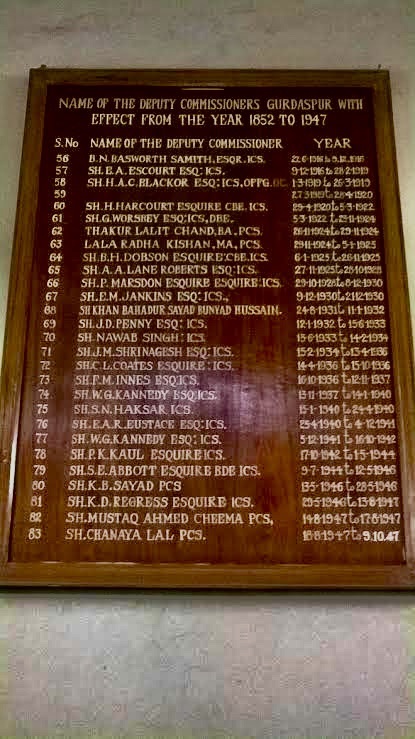 NAME OF THE DEPUTY COMMISSIONERS GURDASPUR WITH
EFFECT FROM THE YEAR 1852 TO 1947
S.No NAME OF THE DEPUTY COMMISSIONER YEAR
56 B.N. BASWORTH SAMITH, ESQR. ICS. 22-6-1916 to 9.12.1916
57 SH.E.A. ESCOURT ESQ: ICS. 9-12-1916 to 28-2-1919
58 SH.H.A.C. BLACKOR ESQ: ICS, OFFG. 1-3-1919 to 26-3-1919
59 27.3.1919 to 28-4-1920
60 SH.H.HARCOURT ESQUIRE CBE. ICS. 29-4-1920 to 5-3-1922.
61 SH.G.WORSBEY ESQ: ICS, DBE. 5-3-1922 to 25-11-1924
62 THAKUR LALIT CHAND, BA. PCS. 26-11-1924 to 29-11-1924
63 LALA RADHA KISHAN, MA, PCS. 29-11-1924 to 5-1-1925
64 SH.B.H. DOBSON ESQUIRE CBE. ICS. 6-1-1925 to 26-11-1925
65 SH.A.A. LANE ROBERTS ESQ: ICS. 27-11-1925 to 28-10-1928
66 SH.P. MARSDON ESQUIRE ESQUIRE: ICS. 29-10-1928 to 8-12-1930
67 SH.E.M. JANKINS ESQ: ICS., 9-12-1930 to 21-12-1930
68 SH KHAN BAHADUR SAYAD BUNYAD HUSSAIN. 24-8-1931 to 11-1-1932
69 SH.J.D. PENNY ESQ: ICS. 12-1-1932 to 15-6-1933
70 SH.NAWAB SINGH: ICS. 15-6-1933 to 14-2-1934
71 SH.J.M. SHRINAGESH ESQ: ICS. 15-2-1934 to 13-4-1936
72 SH.C.L. COATES ESQUIRE: ICS. 14-4-1936 to 15-10-1936
73 SH.F.M. INNES ESQ: ICS. 16-10-1936 to 12-11-1937
74 SH.W.G. KANNEDY ESQ: ICS. 13-11-1937 to 14-1-1940
75 SH.S.N. HAKSAR ICS. 15-1-1940 to 24-4-1940
76 SH.E.A.R. EUSTACE ESQ: ICS. 25-4-1940 to 4-12-1941
77 SH.W.G. KANNEDY ESQ: ICS. 5-12-1941 to 16-10-1942
78 SH.P.K. KAUL ESQUIRE ICS. 17-10-1942 to 1-5-1944
79 SH.S.E. ABBOTT ESQUIRE BDE ICS. 9-7-1944 to 12-5-1946
80 SH.K.B. SAYAD PCS 13-5-1946 to 28-5-1946
81 SH.K.D. REGRESS ESQUIRE ICS. 29-5-1946 to 13-8-1947
82 SH.MUSTAQ AHMED CHEEMA PCS, 14-8-1947 to 17-8-1947
83 SH.CHANAYA LAL PCS. 18-8-1947 to 9.10.47